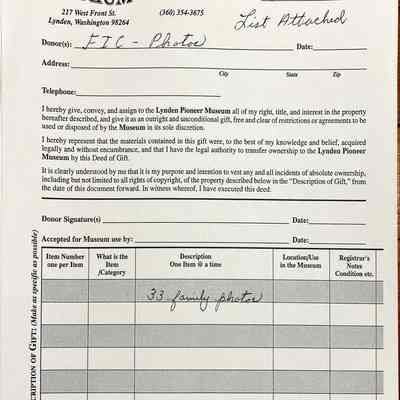 217 West Front St. (360) 354-3675
Lynden, Washington 98264
List Attached
Donor(s): FIC - Photos Date:
Address:
City State Zip
Telephone:
I hereby give, convey, and assign to the Lynden Pioneer Museum all of my right, title, and interest in the property
hereafter described, and give it as an outright and unconditional gift, free and clear of restrictions or agreements to be
used or disposed of by the Museum in its sole discretion.
I hereby represent that the materials contained in this gift were, to the best of my knowledge and belief, acquired
legally and without encumbrance, and that I have the legal authority to transfer ownership to the Lynden Pioneer
Museum by this Deed of Gift.
It is clearly understood by me that it is my purpose and intention to vent any and all incidents of absolute ownership,
including but not limited to all rights of copyright, of the property described below in the "Description of Gift," from
the date of this document forward. In witness whereof, I have executed this deed.
Donor Signature(s) Date:
Accepted for Museum use by: Date:
Item Number one per Item
What is the Item /Category
Description One Item @ a time
Location/Use in the Museum
Registrar's Notes Condition etc.
33 family photos
CRIPTION OF GIFT: (Make as specific as possible)